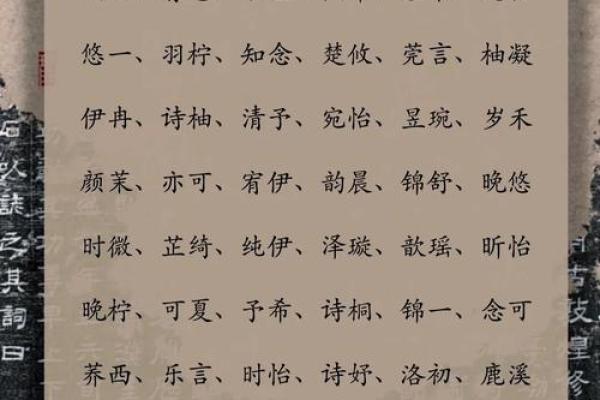 悠一、羽柠、知念、楚攸、莞言、柚凝
伊冉、诗柚、清予、宛怡、昱琬、岁禾
颜茉、亦可、宥伊、韵晨、锦舒、晚悠
时微、芷绮、纯伊、泽璇、歆瑶、昕怡
晚柠、可夏、予希、诗桐、锦一、念可
荞西、乐言、时怡、诗妤、洛初、鹿溪